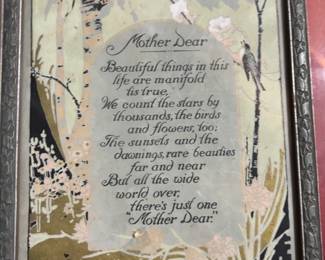 Mother Dear
Beautiful things in this
life are manifold
tis true,
We count the stars by
thousands, the birds
and flowers, too;
The sunsets and the
dawnings, rare beauties
far and near
But all the wide
world over,
there's just one
"Mother Dear."